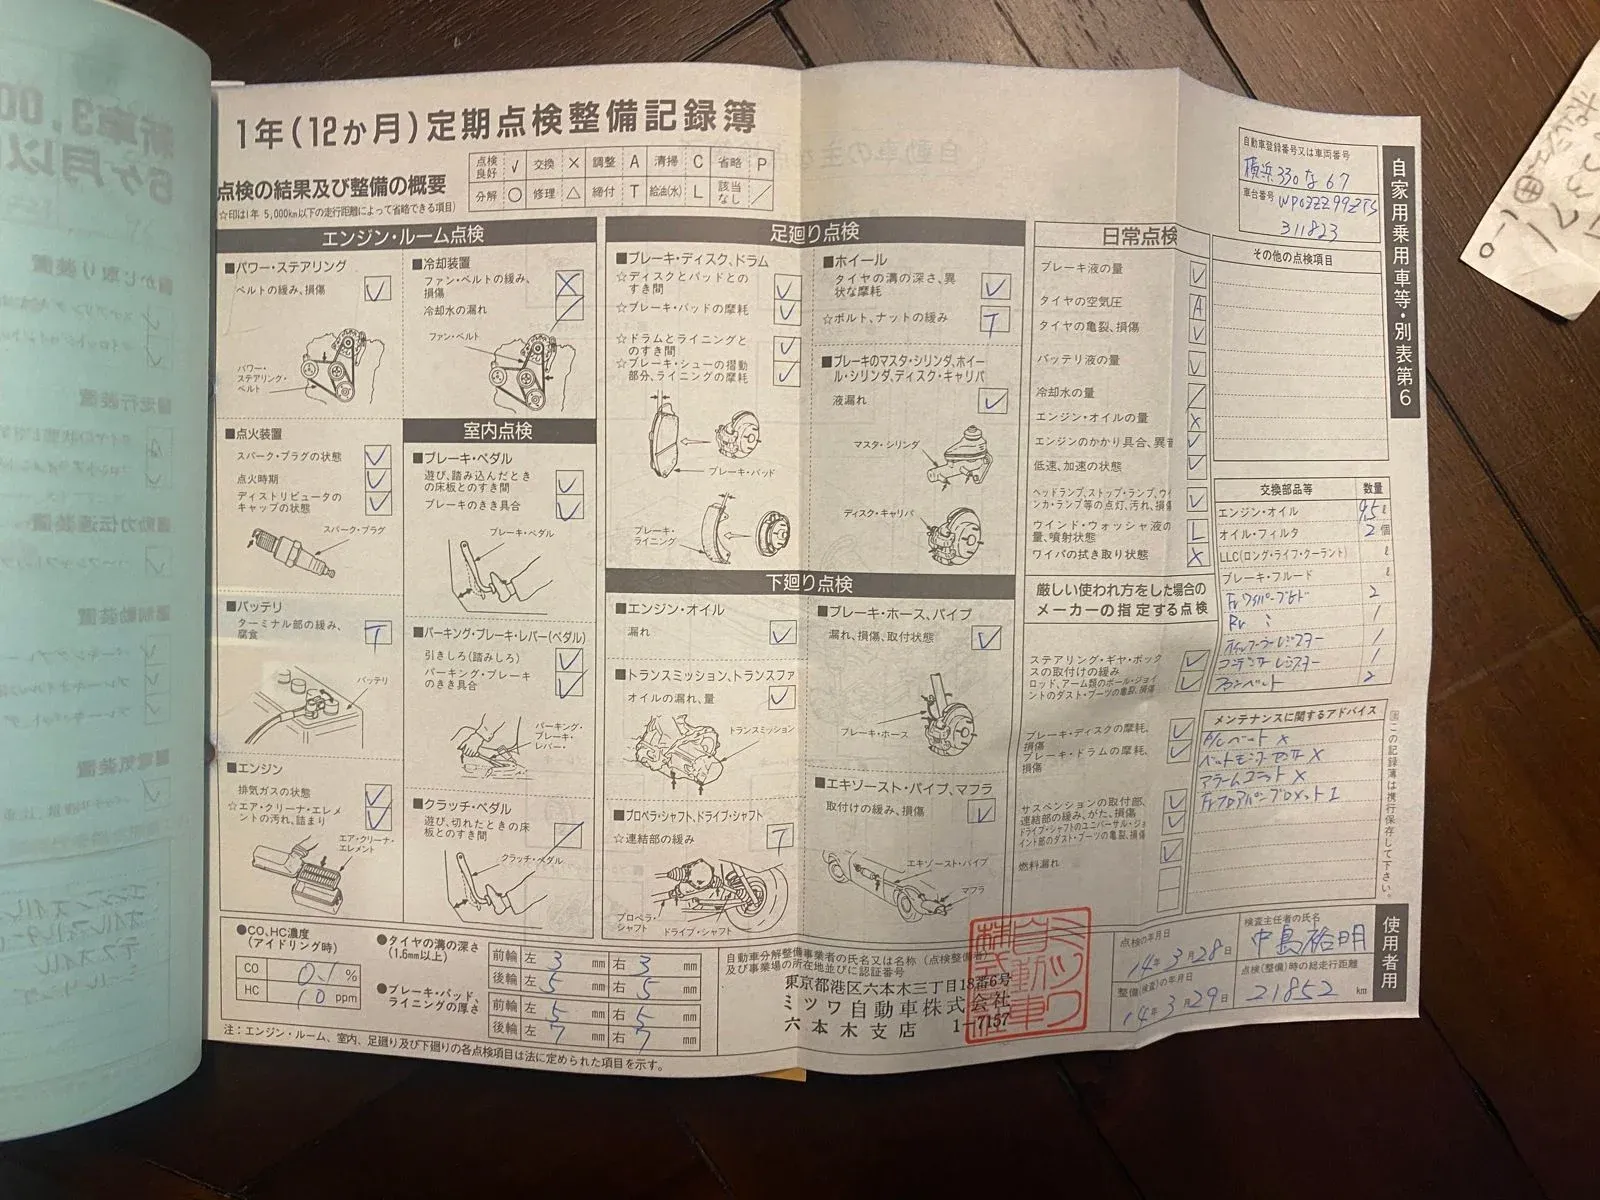 1年(12か月)定期点検整備記録簿
点検の結果及び整備の概要
(☆印は1年 5,000km以下の走行距離によって省略できる項目)
点検良好 √ 交換 × 調整 A 清掃 C 省略 P
分解 ○ 修理 △ 締付 T 給油(水) L 該当なし ／
自動車登録番号又は車両番号
横浜330な67
車台番号 WP0ZZZ99ZTS
311823
自家用乗用車等・別表第6
エンジン・ルーム点検
■パワー・ステアリング
ベルトの緩み、損傷 √
パワー・ステアリング・ベルト
■冷却装置
ファン・ベルトの緩み、損傷 ×
冷却水の漏れ ／
ファン・ベルト
■点火装置
スパーク・プラグの状態 √
点火時期 √
ディストリビュータのキャップの状態 √
スパーク・プラグ
■バッテリ
ターミナル部の緩み、腐食 T
バッテリ
■エンジン
排気ガスの状態 √
☆エア・クリーナ・エレメントの汚れ、詰まり √
エア・クリーナ・エレメント
室内点検
■ブレーキ・ペダル
遊び、踏み込んだときの床板とのすき間 √
ブレーキのきき具合 √
ブレーキ・ペダル
■パーキング・ブレーキ・レバー(ペダル)
引きしろ(踏みしろ) √
パーキング・ブレーキのきき具合 √
パーキング・ブレーキ・レバー・
■クラッチ・ペダル
遊び、切れたときの床板とのすき間 ／
クラッチ・ペダル
足廻り点検
■ブレーキ・ディスク、ドラム
☆ディスクとパッドとのすき間 √
☆ブレーキ・パッドの摩耗 √
☆ドラムとライニングとのすき間 √
☆ブレーキ・シューの摺動部分、ライニングの摩耗 √
ブレーキ・パッド
ブレーキ・ライニング
■ホイール
タイヤの溝の深さ、異状な摩耗 √
☆ボルト、ナットの緩み T
■ブレーキのマスタ・シリンダ、ホイール・シリンダ、ディスク・キャリパ
液漏れ √
マスタ・シリンダ
ディスク・キャリパ
下廻り点検
■エンジン・オイル
漏れ √
■トランスミッション、トランスファ
オイルの漏れ、量 √
トランスミッション
■プロペラ・シャフト、ドライブ・シャフト
☆連結部の緩み T
プロペラ・シャフト
ドライブ・シャフト
■ブレーキ・ホース、パイプ
漏れ、損傷、取付状態 √
ブレーキ・ホース
■エキゾースト・パイプ、マフラ
取付けの緩み、損傷 √
エキゾースト・パイプ
マフラ
日常点検
ブレーキ液の量 √
タイヤの空気圧 A
タイヤの亀裂、損傷 √
バッテリ液の量 √
冷却水の量 ／
エンジン・オイルの量 ×
エンジンのかかり具合、異音 √
低速、加速の状態 √
ヘッドランプ、ストップ・ランプ、ウインカ・ランプ等の点灯、汚れ、損傷 √
ウインド・ウォッシャ液の量、噴射状態 L
ワイパの拭き取り状態 ×
厳しい使われ方をした場合の
メーカーの指定する点検
ステアリング・ギヤ・ボックスの取付けの緩み √
ロッド、アーム類のボール・ジョイントのダスト・ブーツの亀裂、損傷 √
ブレーキ・ディスクの摩耗、損傷 √
ブレーキ・ドラムの摩耗、損傷 √
サスペンションの取付部、連結部の緩み、がた、損傷 √
ドライブ・シャフトのユニバーサル・ジョイント部のダスト・ブーツの亀裂、損傷 √
燃料漏れ √
その他の点検項目
交換部品等 数量
エンジン・オイル 9.5 ℓ
オイル・フィルタ 2 個
LLC(ロング・ライフ・クーラント) ℓ
ブレーキ・フルード ℓ
Frワイパーブレード 2
Rr 〃 1
オイルクーラーレジスター 1
コンデンサーレジスター 1
ファンベルト 2
メンテナンスに関するアドバイス
A/Cベルト ×
ベルトモニターセンサー ×
アラームユニット ×
この記録簿は携行保存して下さい。
●CO、HC濃度
(アイドリング時)
CO 0.1 %
HC 10 ppm
●タイヤの溝の深さ
(1.6mm以上)
前輪 左 3 mm 右 3 mm
後輪 左 5 mm 右 5 mm
●ブレーキ・パッド、ライニングの厚さ
前輪 左 5 mm 右 5 mm
後輪 左 7 mm 右 7 mm
自動車分解整備事業者の氏名又は名称(点検整備者)
及び事業場の所在地並びに認証番号
東京都港区六本木三丁目18番6号
ミツワ自動車株式会社
六本木支店 1-7157
ミツワ自動車株式会社
点検の年月日
14年3月28日
整備(検査)の年月日
14年3月29日
検査主任者の氏名
中島裕明
点検(整備)時の総走行距離
21852 km
使用者用
注:エンジン・ルーム、室内、足廻り及び下廻りの各点検項目は法に定められた項目を示す。